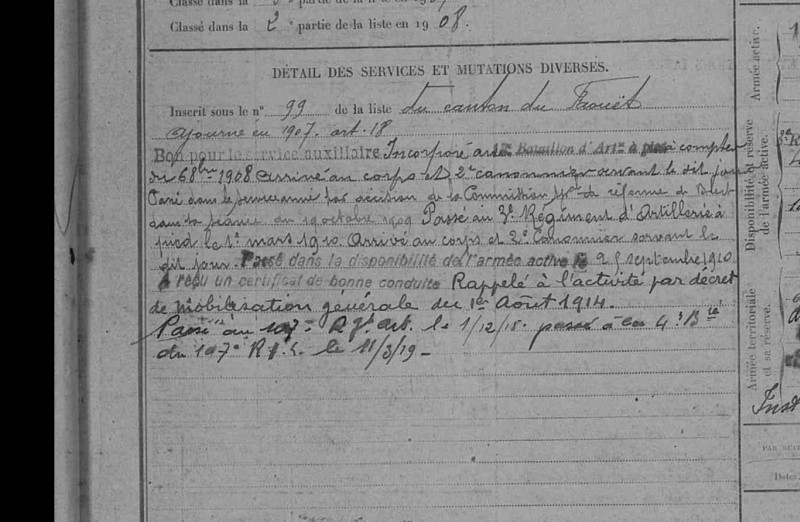 Classé dans la
Classé dans la 2e partie de la liste en 1908.
DÉTAIL DES SERVICES ET MUTATIONS DIVERSES.
Inscrit sous le n° 99 de la liste du canton du Faouët
Ajourné en 1907. art. 18
Bon pour le service auxiliaire Incorporé au Bataillon d'Artie à pied à compter
du 6 8bre 1908 arrivé au corps et 2e canonnier servant le dit jour
dans le service armé par décision de la Commission de réforme de Brest
dans sa séance du 19 octobre 1909 Passé au 3e Régiment d'Artillerie à
pied le 1er mars 1910. Arrivé au corps et 2e Canonnier servant le
dit jour. Passé dans la disponibilité de l'armée active le 25 septembre 1910
A reçu un certificat de bonne conduite Rappelé à l'activité par décret
de mobilisation générale du 1er Août 1914.
Passé au 107e le 1/12/15. passé à la 4e Bie
du 107e le 11/3/19 -
Armée active.
Disponibilité et réserve
de l'armée active.
Armée territoriale
et sa réserve.
Dates